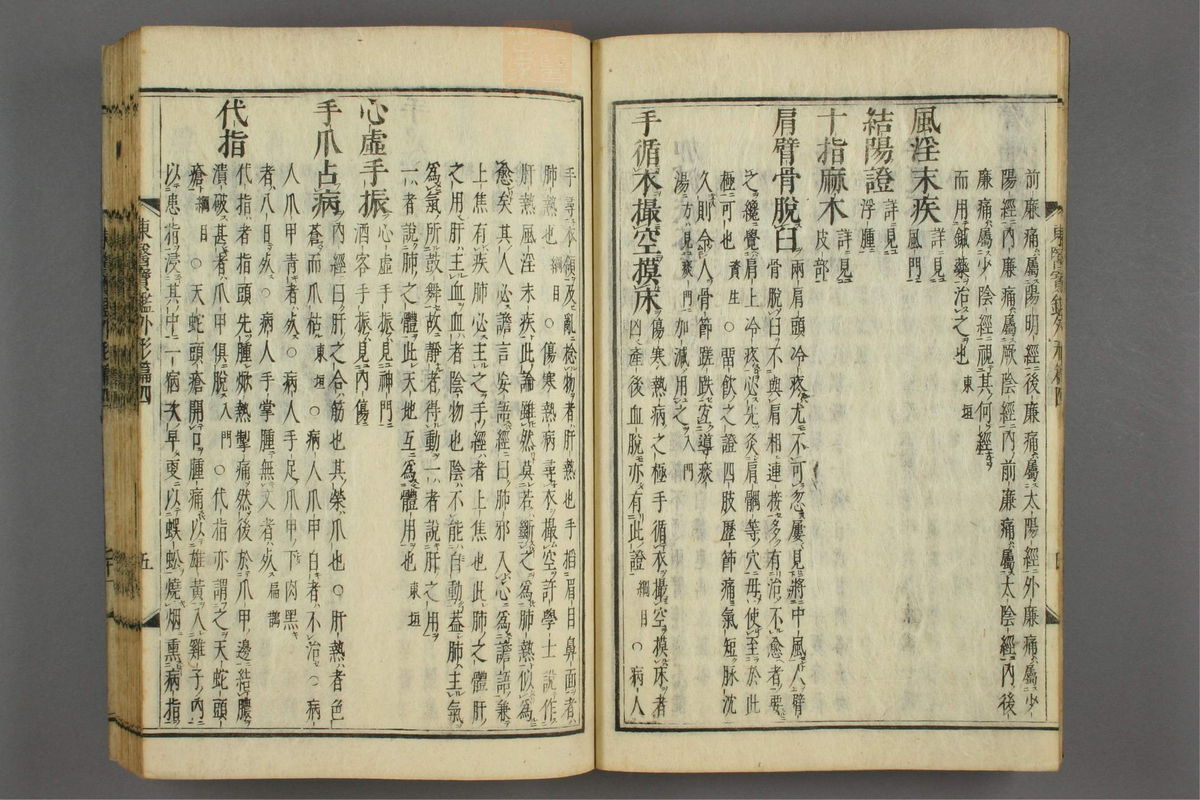 前廉痛屬陽明經後廉痛屬太陽經外廉痛屬少
陽經內廉痛屬厥陰經內前廉痛屬太陰經內後
廉痛屬少陰經視其何經
而用鍼藥治之也 東垣
風淫末疾 詳見風門
結陽證 詳見浮腫
十指麻木 詳見皮部
肩臂骨脫臼 兩肩頭冷疼尤不可忽屢見將中風人臂
骨脫臼不與肩相連接多有治不愈者要
之纔覺肩上冷疼必先灸肩髃等穴毋使至於此
極可也 資生 ○留飮之證四肢歷節痛氣短脉沈
久則令人骨節蹉跌宜導痰
湯方見痰門加減用之 入門
手循衣撮空摸床 傷寒熱病之極手循衣撮空摸床者
凶産後血脫亦有此證 綱目 ○病人
手尋衣領及亂捻物者肝熱也手捫眉目鼻面者
肺熱也 綱目 ○傷寒熱病尋衣撮空許學士說作
肝熱風淫末疾此論雖然莫若斷之爲肺熱似爲
愈矣其人必譫言妄語經曰肺邪入心爲譫語兼
上焦有疾肺必主之手經者上焦也此肺之體肝
之用肝主血血者陰物也陰不能自動盖肺主氣
爲氣所鼓舞故靜者得動一者說肝之用
一者說肺之體此天地互爲體用也 東垣
心虛手振 心虛手振見神門
酒客手振見內傷
手爪占病 內經曰肝之合筋也其榮爪也○肝熱者色
蒼而爪枯 東垣 ○病人爪甲白者不治○病
人爪甲青者死○病人手足爪甲下肉黑
者八日死○病人手掌腫無文者死 扁鵲
代指 代指者指頭先腫焮熱掣痛然後於爪甲邊結膿
潰破甚者爪甲俱脫 入門 ○代指亦謂之天蛇頭
瘡 綱目 ○天蛇頭瘡開口腫痛以雄黃入雞子內
以患指浸其中一宿次早更以蜈蚣燒烟熏病指
東醫寶鑑外形篇四
五